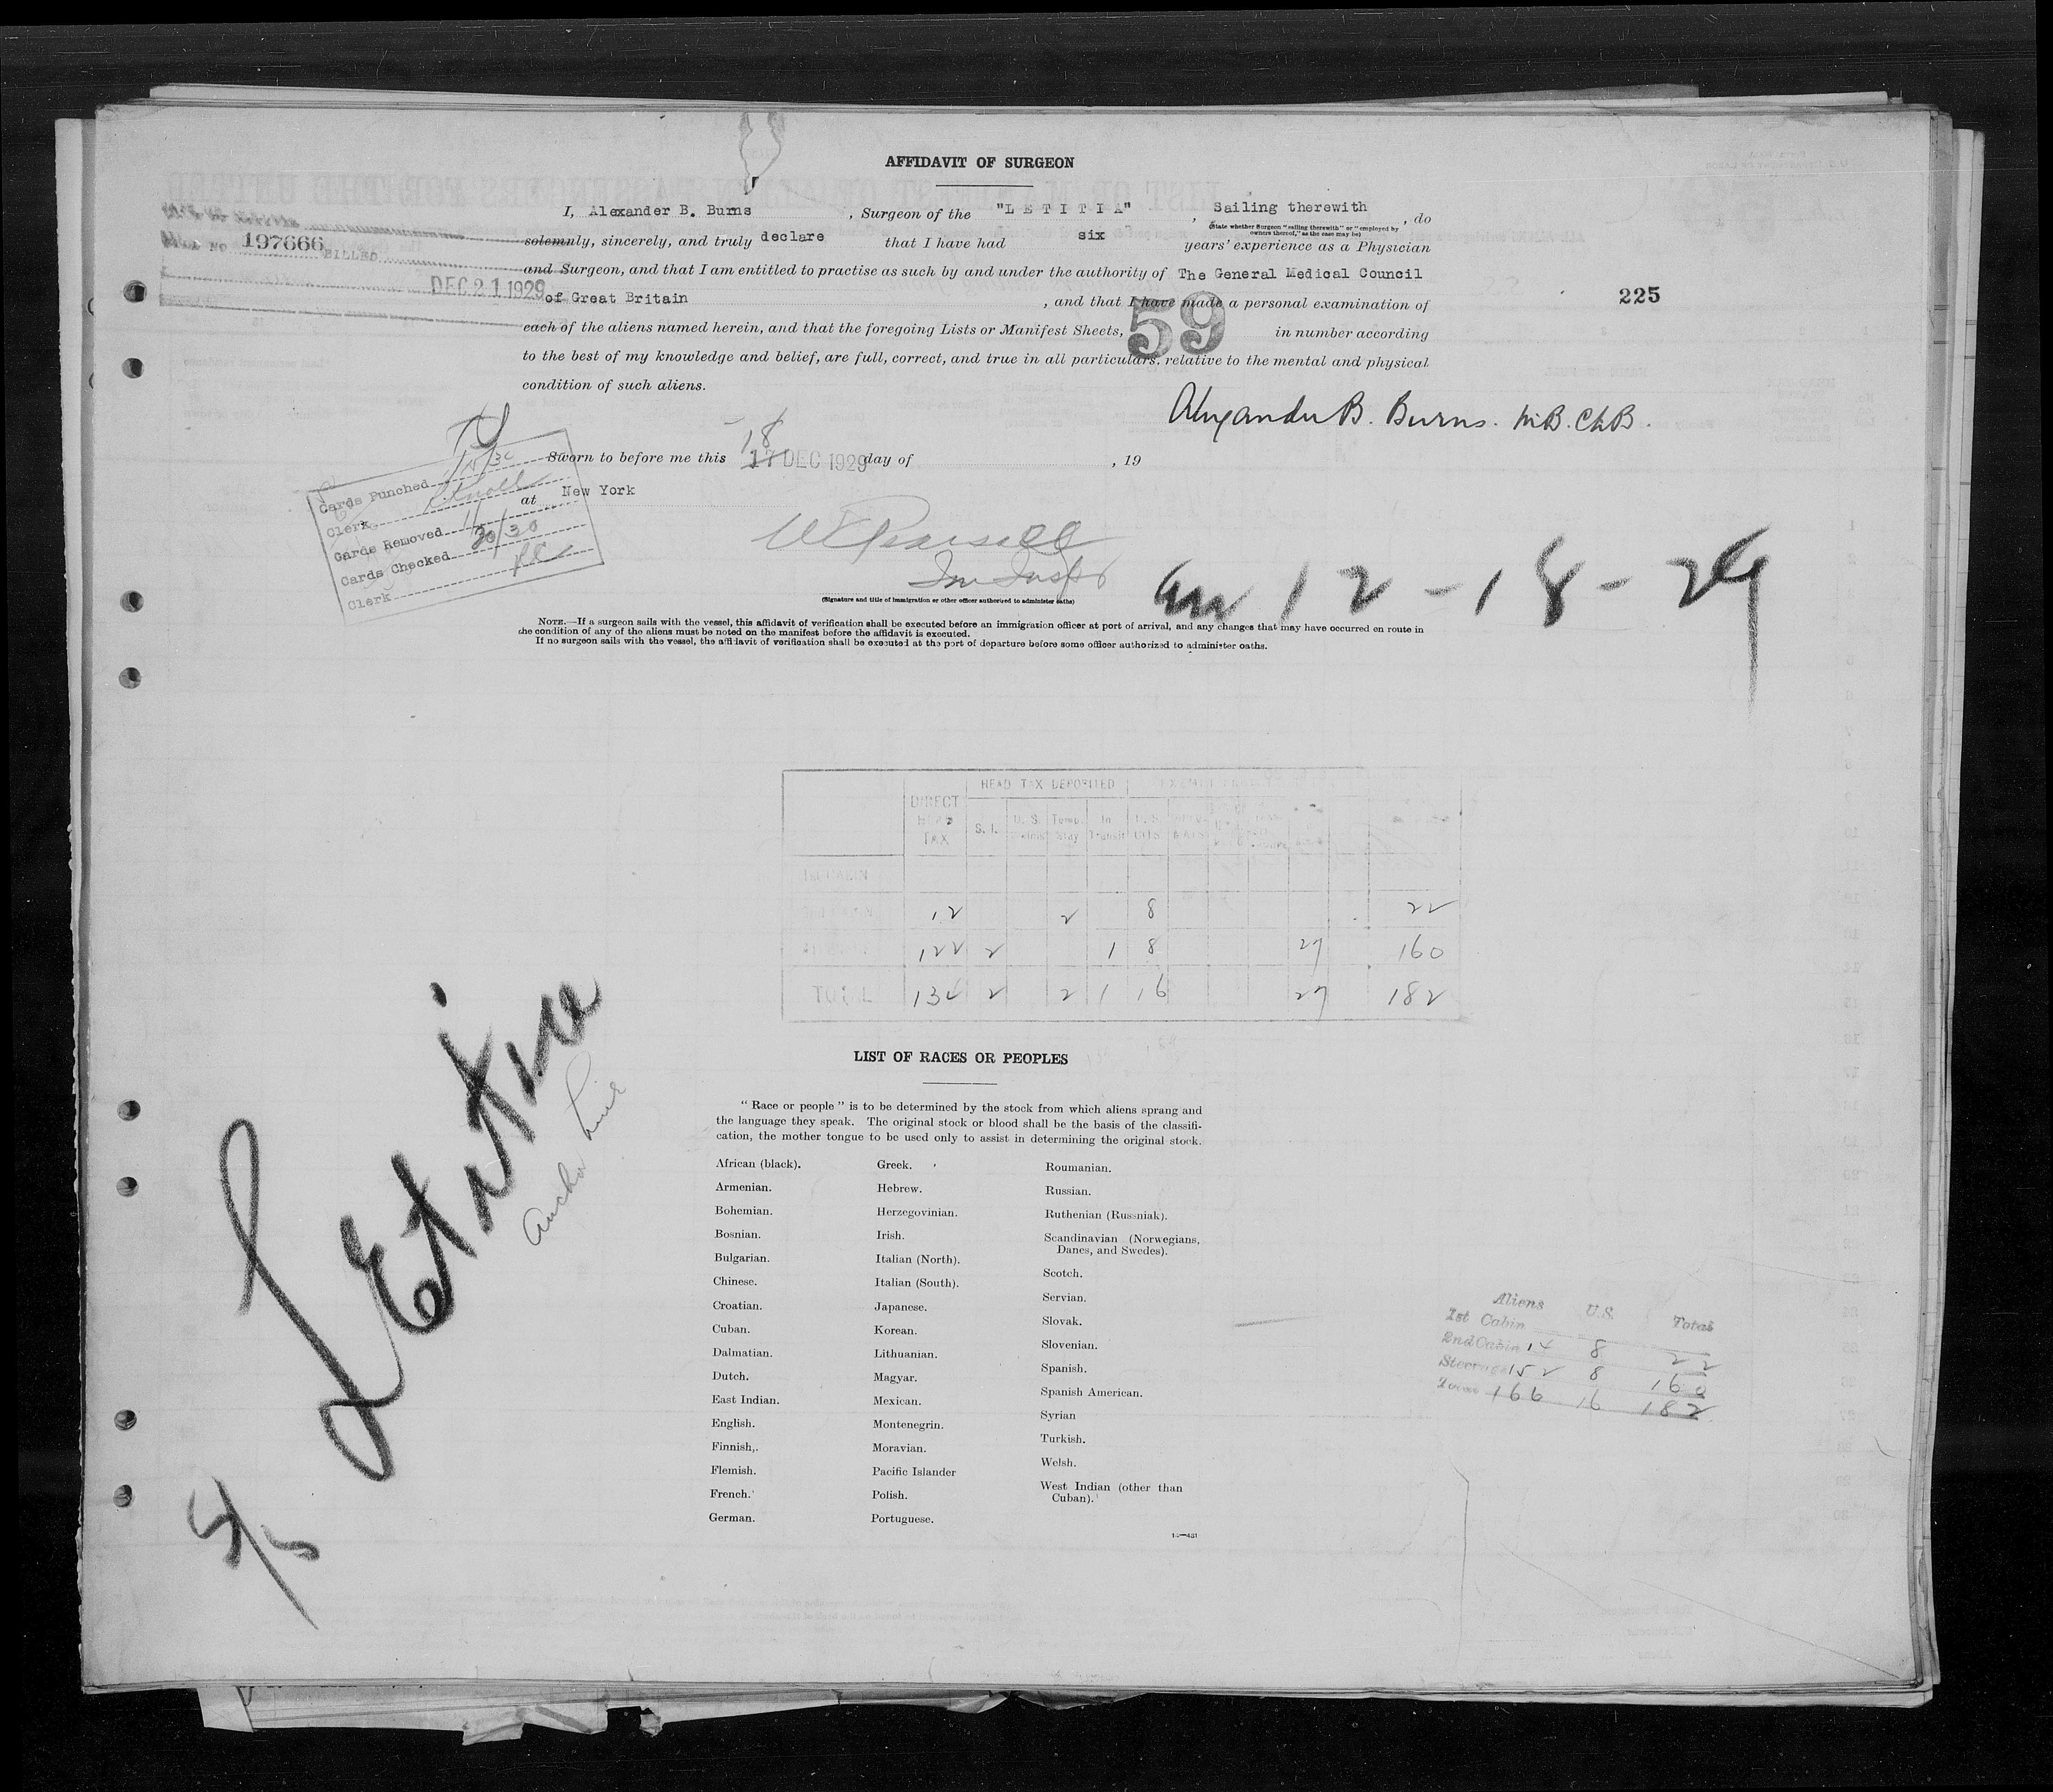 AFFIDAVIT OF SURGEON
I, Alexander B. Burns , Surgeon of the "L E T I T I A" , Sailing therewith , do
(State whether Surgeon "sailing therewith" or "employed by owners thereof," as the case may be)
solemnly, sincerely, and truly declare that I have had six years' experience as a Physician
No 197666 BILLED
and Surgeon, and that I am entitled to practise as such by and under the authority of The General Medical Council
DEC 21 1929
of Great Britain , and that I have made a personal examination of
225
59
each of the aliens named herein, and that the foregoing Lists or Manifest Sheets, in number according
to the best of my knowledge and belief, are full, correct, and true in all particulars, relative to the mental and physical
condition of such aliens.
Alexander B. Burns. M.B. Ch.B.
Sworn to before me this 18 17 DEC 1929 day of , 19
at New York
Cards Punched
Clerk
Cards Removed
Cards Checked 30/30
Clerk
Im Inspr
(Signature and title of immigration or other officer authorized to administer oaths)
12-18-29
NOTE.—If a surgeon sails with the vessel, this affidavit of verification shall be executed before an immigration officer at port of arrival, and any changes that may have occurred on route in
the condition of any of the aliens must be noted on the manifest before the affidavit is executed.
If no surgeon sails with the vessel, the affidavit of verification shall be executed at the port of departure before some officer authorized to administer oaths.
HEAD TAX DEPOSITED
DIRECT HEAD TAX S. I. U. S. Temp. Stay In Transit U. S. CITS.
1st CABIN
12 2 8 22
122 2 1 8 27 160
TOTAL 134 2 2 1 16 27 182
Letitia
Anchor Line
5/5
LIST OF RACES OR PEOPLES
"Race or people" is to be determined by the stock from which aliens sprang and
the language they speak. The original stock or blood shall be the basis of the classifi-
cation, the mother tongue to be used only to assist in determining the original stock.
African (black).
Armenian.
Bohemian.
Bosnian.
Bulgarian.
Chinese.
Croatian.
Cuban.
Dalmatian.
Dutch.
East Indian.
English.
Finnish.
Flemish.
French.
German.
Greek.
Hebrew.
Herzegovinian.
Irish.
Italian (North).
Italian (South).
Japanese.
Korean.
Lithuanian.
Magyar.
Mexican.
Montenegrin.
Moravian.
Pacific Islander
Polish.
Portuguese.
Roumanian.
Russian.
Ruthenian (Russniak).
Scandinavian (Norwegians,
Danes, and Swedes).
Scotch.
Servian.
Slovak.
Slovenian.
Spanish.
Spanish American.
Syrian
Turkish.
Welsh.
West Indian (other than
Cuban).
Aliens U.S. Total
1st Cabin
2nd Cabin 14 8 22
Steerage 152 8 160
Total 166 16 182